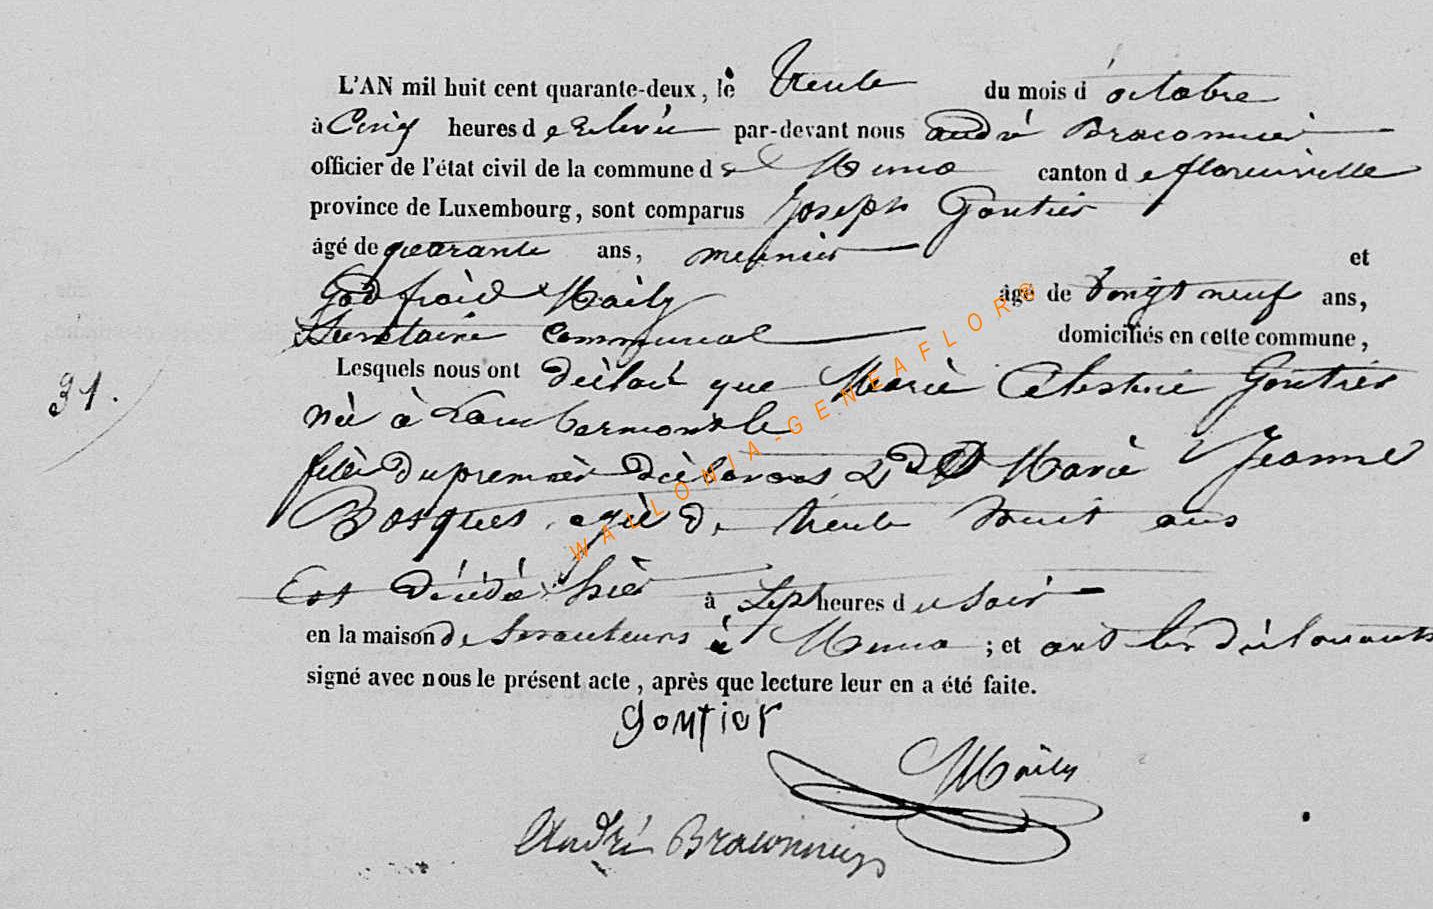 L'AN mil huit cent quarante-deux, le trente du mois d'octobre
à Cinq heures de Relevée par-devant nous andré Braconnier
officier de l'état civil de la commune de Muno canton de florenville
province de Luxembourg, sont comparus Joseph Gontier
âgé de quarante ans, meunier et
Godfroid Maily âgé de vingt neuf ans,
Secretaire communal domiciliés en cette commune,
Lesquels nous ont déclaré que Marie Célestine Gontier
31.
née à Lambermont
fille du premier déclarant & de Marie Jeanne
Bosques, agée de trente huit ans
Est décédée hier à Sept heures du soir
en la maison de à Muno ; et ont les déclarants
signé avec nous le présent acte, après que lecture leur en a été faite.
gontier
Maily
André Braconnier
WALLONIA-GENEAFLOR®